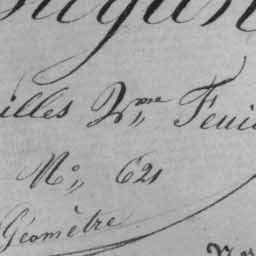 illes 2,,me Feui
No,, 621
Géomètre